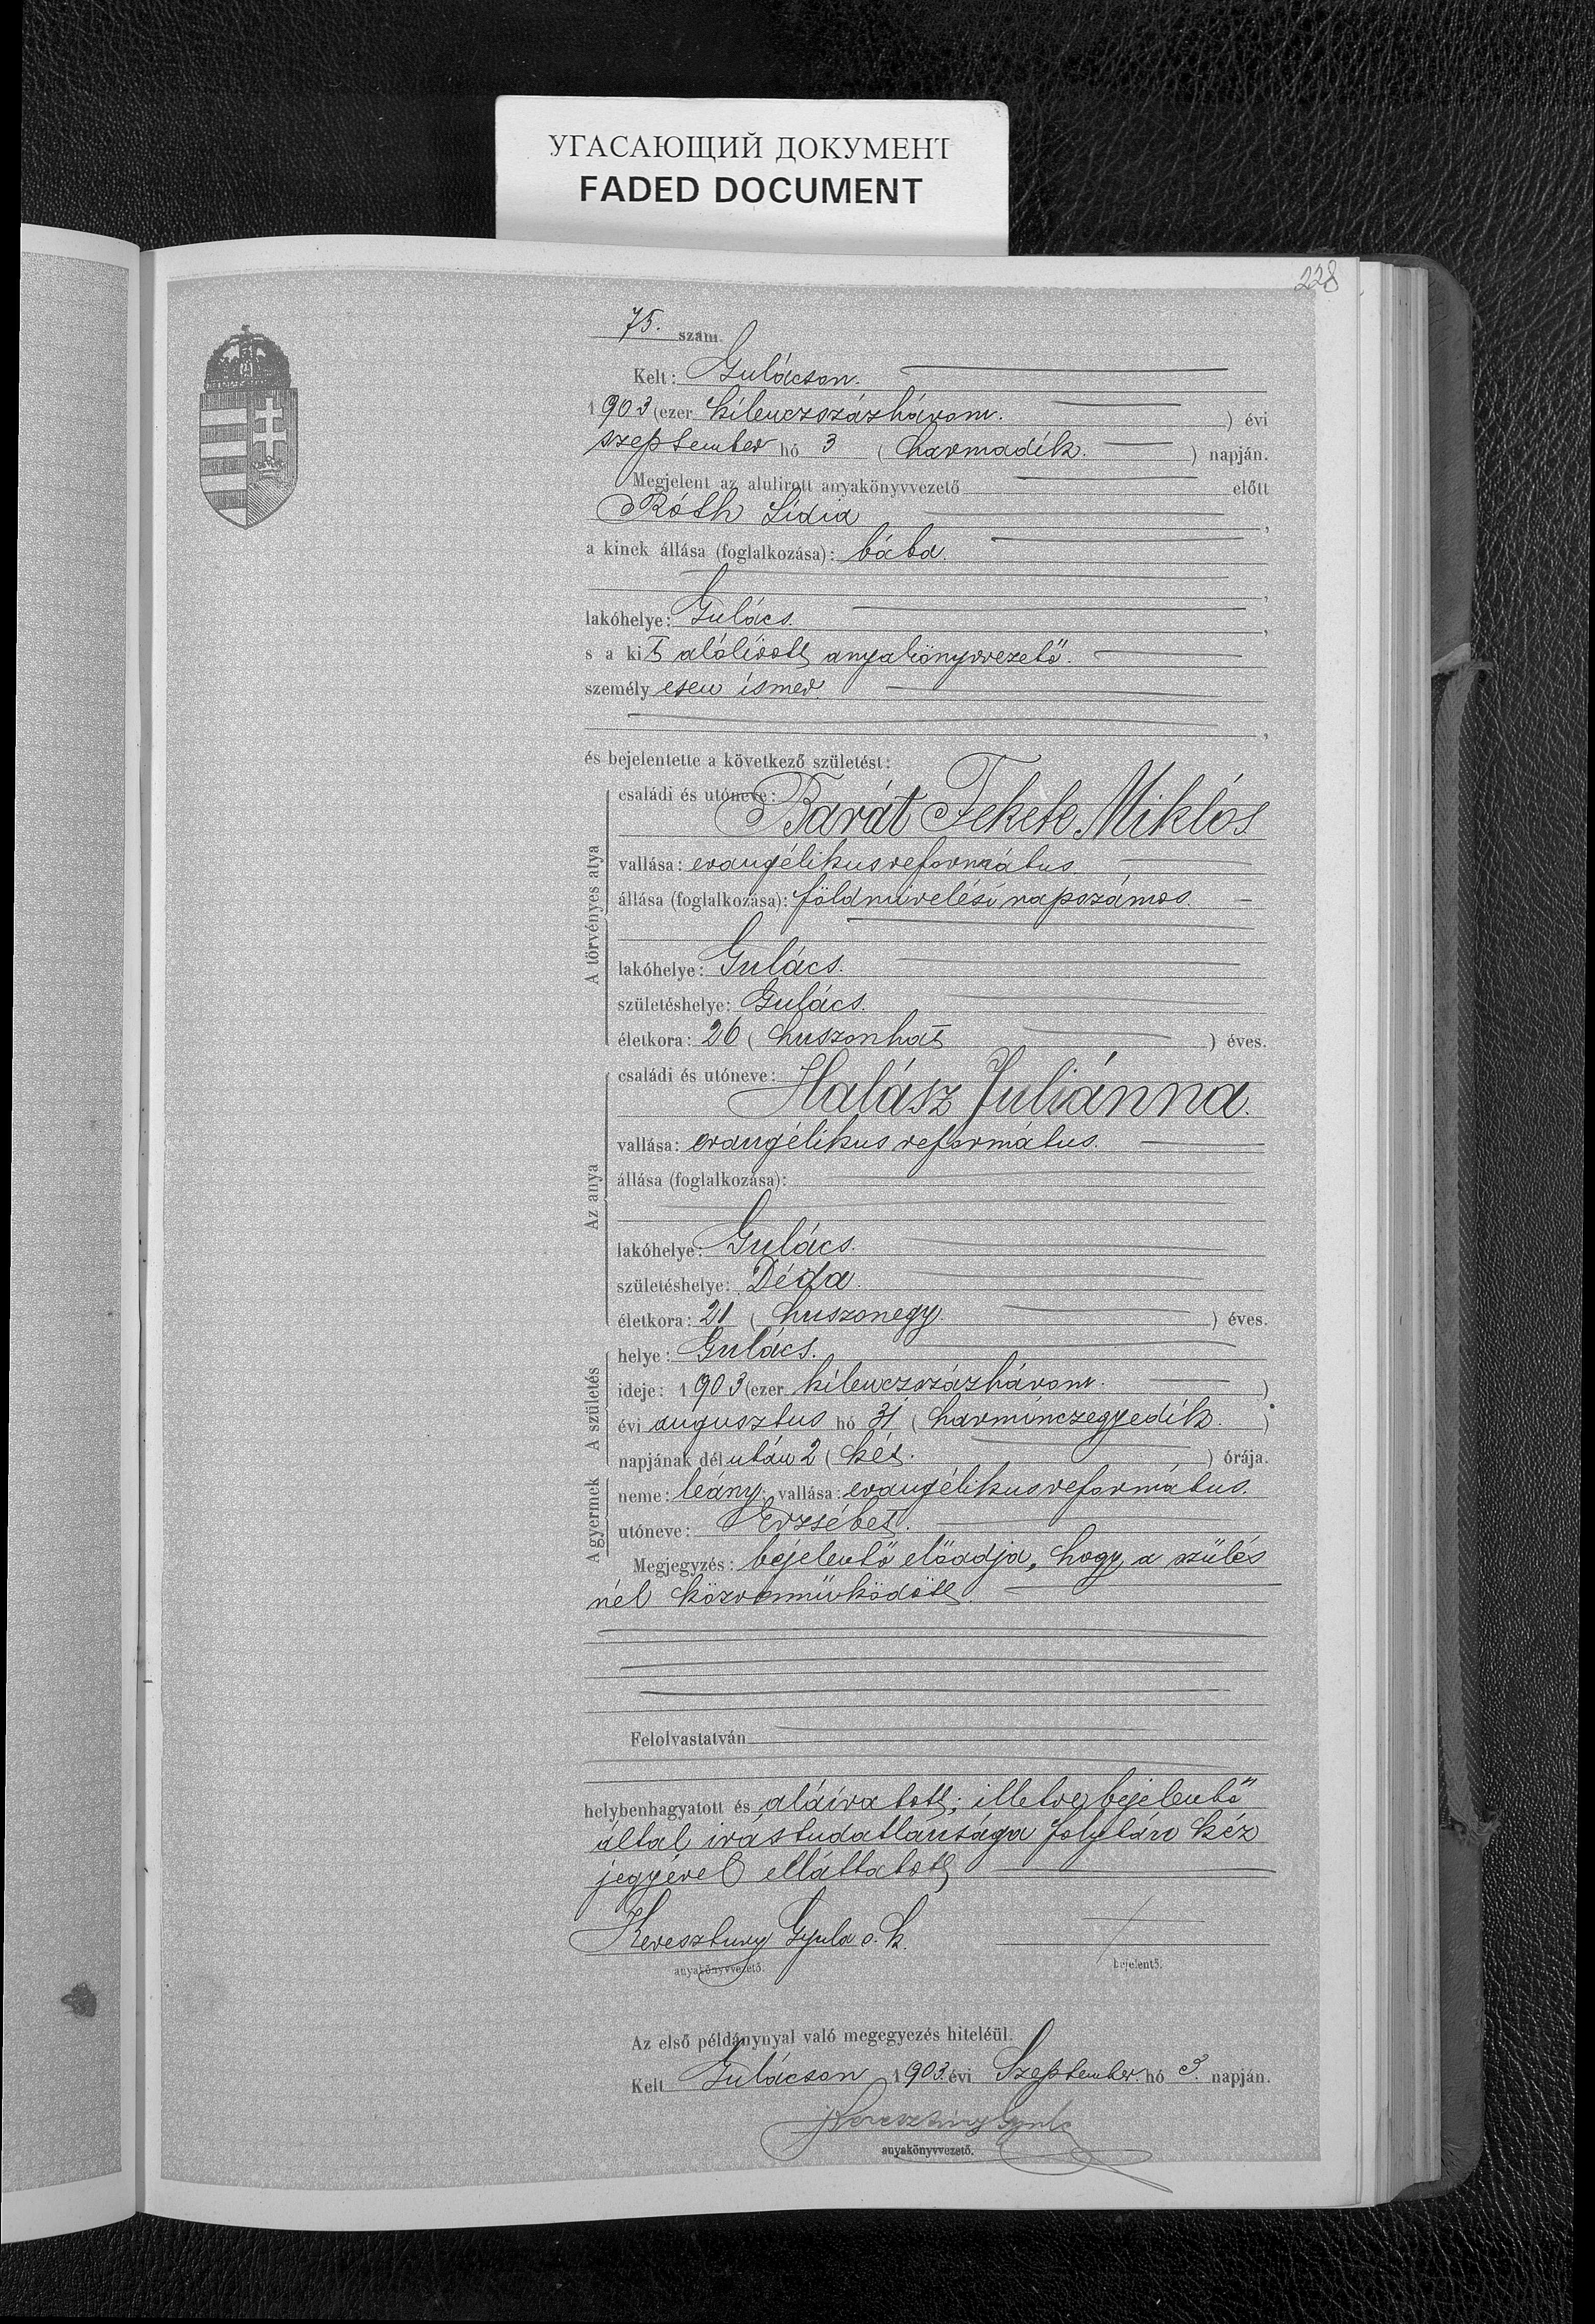 УГАСАЮЩИЙ ДОКУМЕНТ
FADED DOCUMENT
228
75. szám.
Kelt: Gulácson.
1903 (ezer kilenczszázhárom. ) évi
szeptember hó 3 ( harmadik. ) napján.
Megjelent az alulirott anyakönyvvezető előtt
Róth Lidia ,
a kinek állása (foglalkozása): bába.
,
lakóhelye: Gulács. ,
s a kit alólirott anyakönyvvezető.
személyesen ismer.
,
és bejelentette a következő születést:
A törvényes atya
családi és utóneve:
Barát Fekete Miklós
vallása: evangélikus református.
állása (foglalkozása): földmivelési napszámos.
lakóhelye: Gulács.
születéshelye: Gulács.
életkora: 26 ( huszonhat ) éves.
Az anya
családi és utóneve:
Halász Juliánna.
vallása: evangélikus református.
állása (foglalkozása):
lakóhelye: Gulács.
születéshelye: Déda.
életkora: 21 ( huszonegy. ) éves.
A születés
helye: Gulács.
ideje: 1903 (ezer kilenczszázhárom. )
évi augusztus hó 31 ( harminczegyedik. )
napjának délután 2 ( két. ) órája.
A gyermek
neme: leány; vallása: evangélikus református.
utóneve: Erzsébet.
Megjegyzés: bejelentő előadja, hogy a szülés
nél közremüködött.
Felolvastatván
helybenhagyatott és aláiratott; illetve bejelentő
által irástudatlansága folytán kéz
jegyével elláttatott
Keresztury Gyula s. k.
anyakönyvvezető. bejelentő.
Az első példánynyal való megegyezés hiteléül.
Kelt Gulácson 1903. évi Szeptember. hó 3. napján.
Keresztury Gyula
anyakönyvvezető.